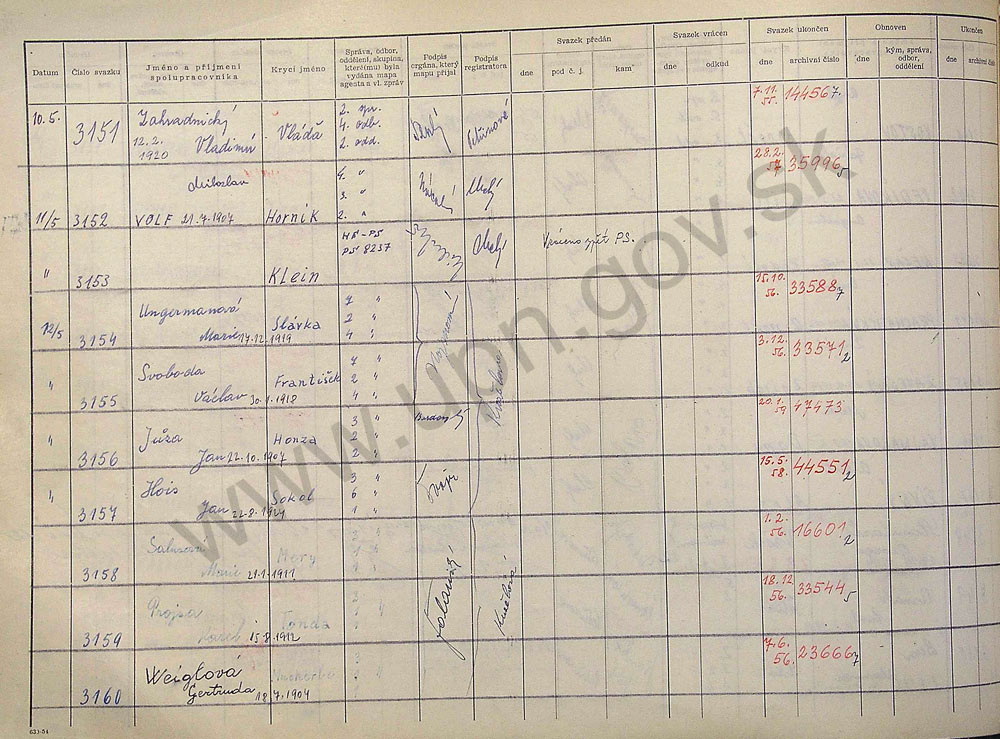 Datum Číslo svazku Jméno a příjmení spolupracovníka Krycí jméno Správa, odbor, oddělení, skupina, které(mu) byla vydána mapa agenta a vl. zpráv Podpis orgána, který mapu přijal Podpis registratora Svazek předán Svazek vrácen Svazek ukončen Obnoven Ukončen
dne pod č. j. kam dne odkud dne archivní číslo dne kým, správa, odbor, oddělení dne archivní číslo
10.5. 3151 Zahradnický Vladimír 12.2. 1920 Vláďa 2. spr. 4. odb. 2. odd. 7.11. 55. 144567.
11/5 3152 VOLF Miloslav 21.7.1907 Horník 4. " 3. " 2. " 28.2. 57 35996 5
" 3153 Klein HS-PS PS 8237 Vráceno zpět PS.
12/5 3154 Ungermanová Marie 17.12.1919 Slávka 7 " 2 " 4 " 15.10. 56. 33588 7
" 3155 Svoboda Václav 30.1.1918 František 7 " 2 " 4 " 3.12. 56. 33571 2
" 3156 Jůza Jan 22.10.1907 Honza 3 " 2 " 2 " 20.1. 59 47473
" 3157 Hois Jan 22.8.1924 Sokol 3 " 6 " 1 " 15.5. 58. 44551 2
3158 Marie 21.1.1911 Mery 1.2. 56. 16601 2
3159 Projsa Karel 15.8.1912 Tonda 18.12. 56. 33544 5
3160 Weiglová Gertruda 18.7.1904 7.6. 56. 23666 7
633-54
www.upn.gov.sk